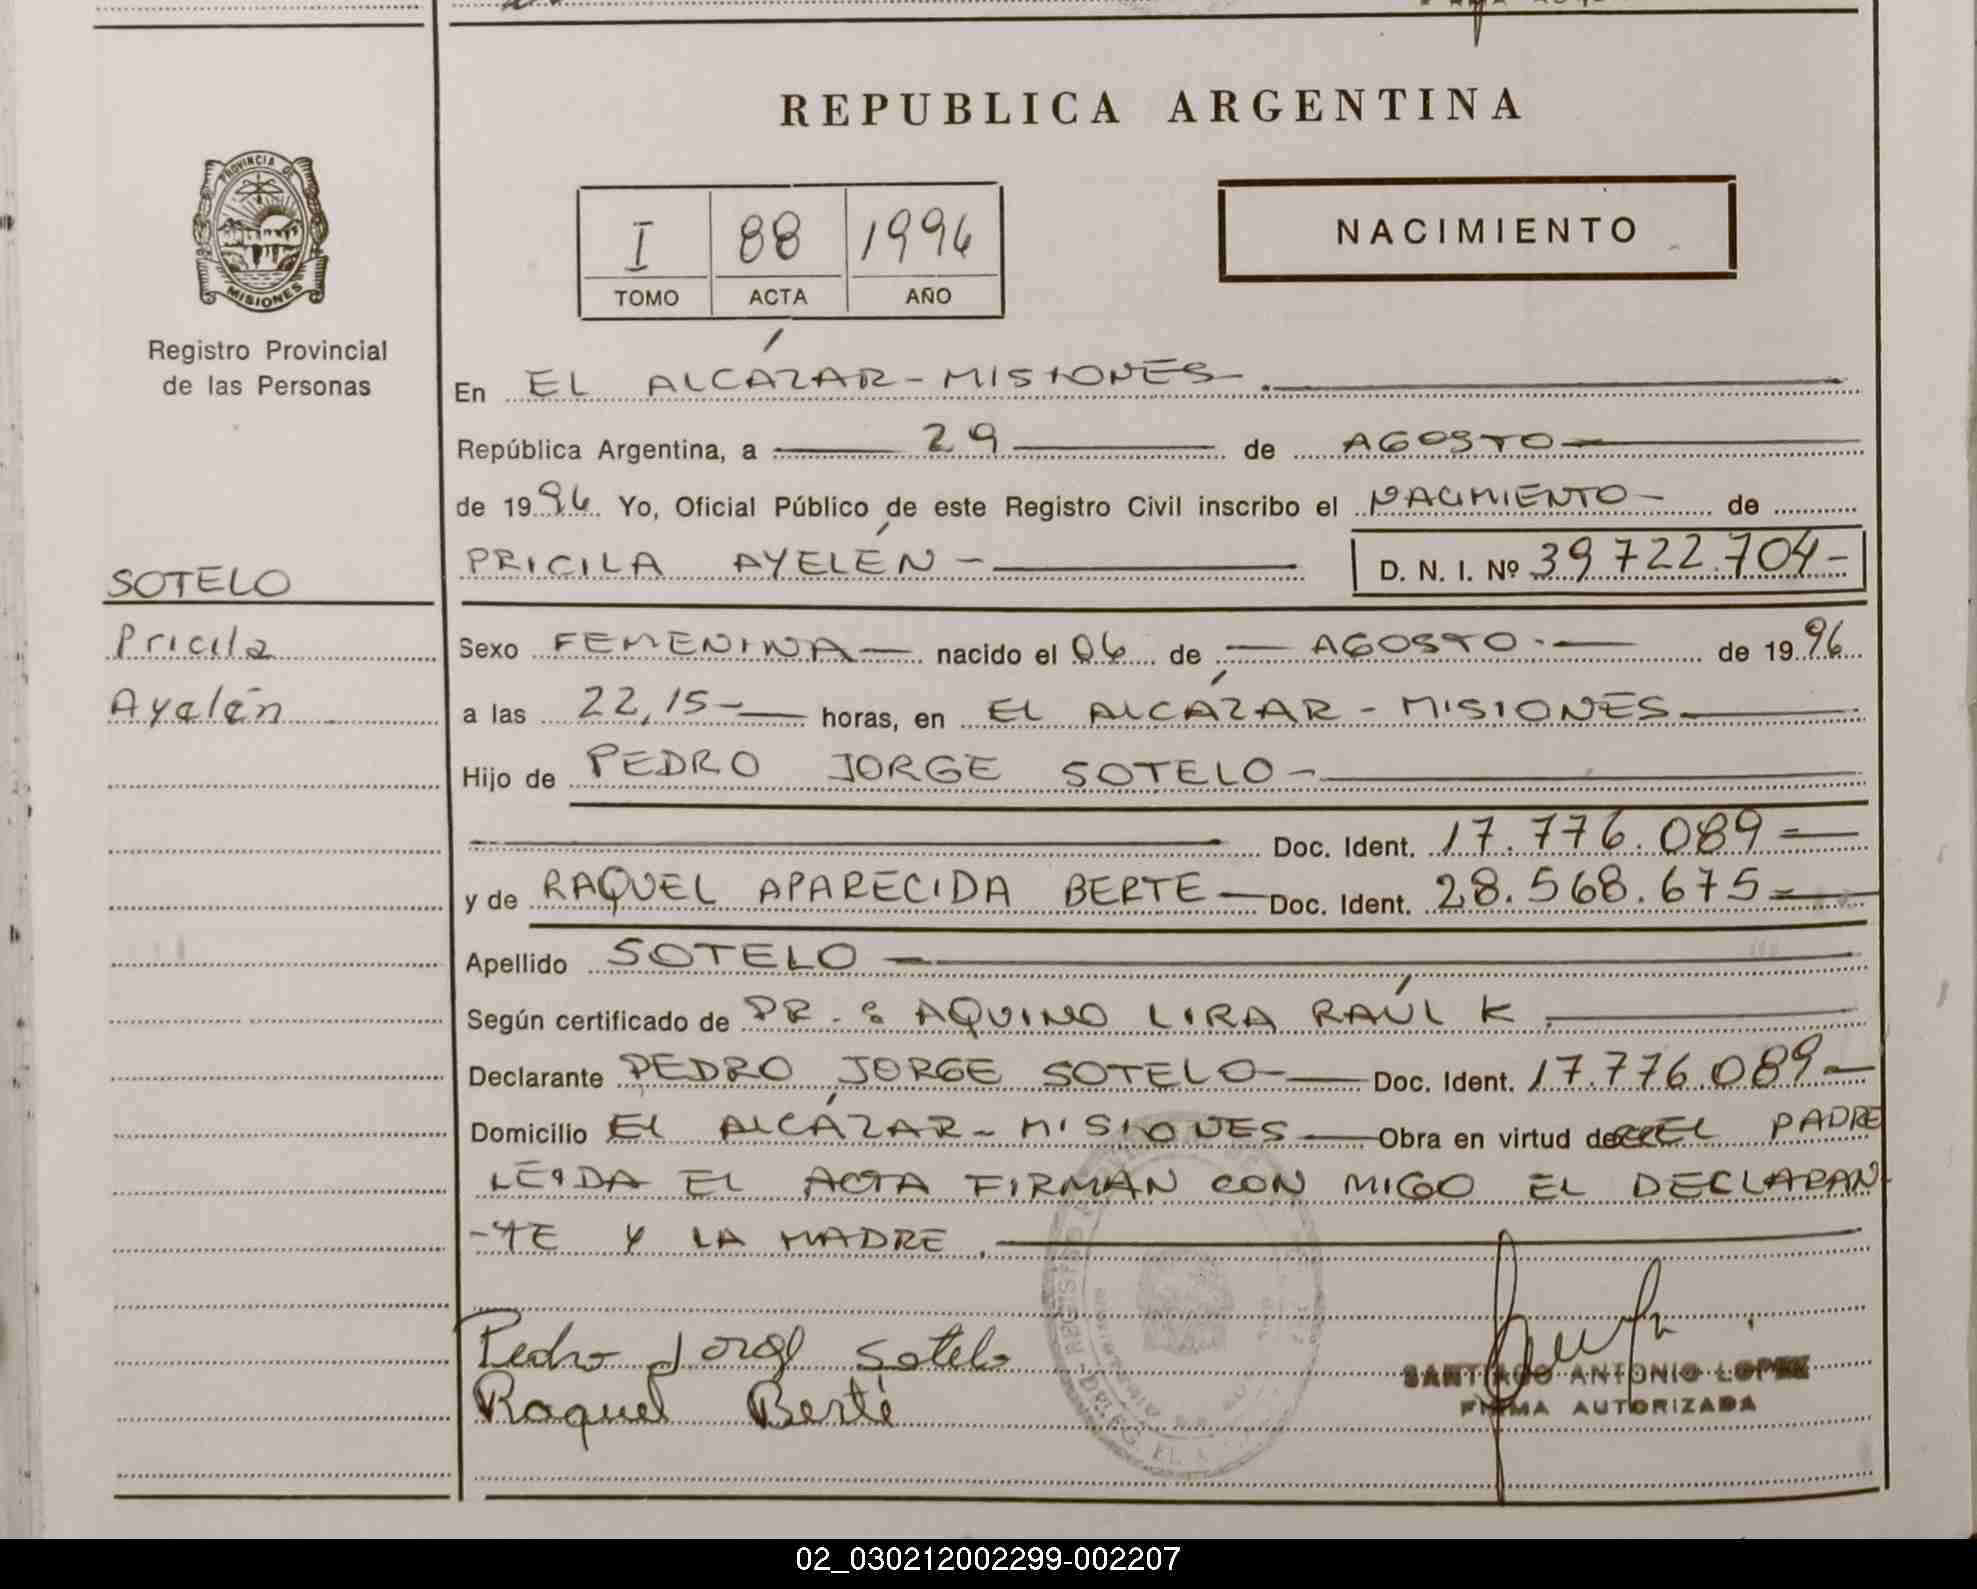 REPUBLICA ARGENTINA
PROVINCIA DE
MISIONES
Registro Provincial
de las Personas
I 88 1996
TOMO ACTA AÑO
NACIMIENTO
En EL ALCÁZAR - MISIONES
República Argentina, a 29 de AGOSTO
de 1996 Yo, Oficial Público de este Registro Civil inscribo el NACIMIENTO - de
PRICILA AYELÉN - D. N. I. Nº 39722.704-
SOTELO
Pricila
Ayelén
Sexo FEMENINA - nacido el 06 de AGOSTO - de 1996
a las 22,15 - horas, en EL ALCÁZAR - MISIONES
Hijo de PEDRO JORGE SOTELO -
Doc. Ident. 17.776.089 =
y de RAQUEL APARECIDA BERTE - Doc. Ident. 28.568.675 =
Apellido SOTELO -
Según certificado de DR. : AQUINO LIRA RAÚL K.
Declarante PEDRO JORGE SOTELO - Doc. Ident. 17.776.089 -
Domicilio EL ALCÁZAR - MISIONES - Obra en virtud de EL PADRE
LEIDA EL ACTA FIRMAN CON MIGO EL DECLARAN-
-TE Y LA MADRE.
Pedro Jorge Sotelo
Raquel Berté
SANTIAGO ANTONIO LOPEZ
FIRMA AUTORIZADA
02_030212002299-002207